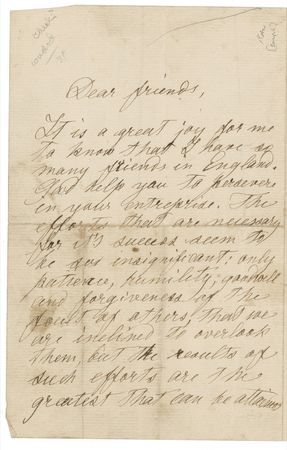 Dear friends,
It is a great joy for me
to know that I have so
many friends in England.
God help you to persevere
in your entreprise. The
efforts that are necessary
for it's success seem to
be sos insignificant: only
patience, humility, goodwill
and forgiveness of the
fault of others, that we
are inclined to overlook
them, but the results of
such efforts are the
greatest that can be attained